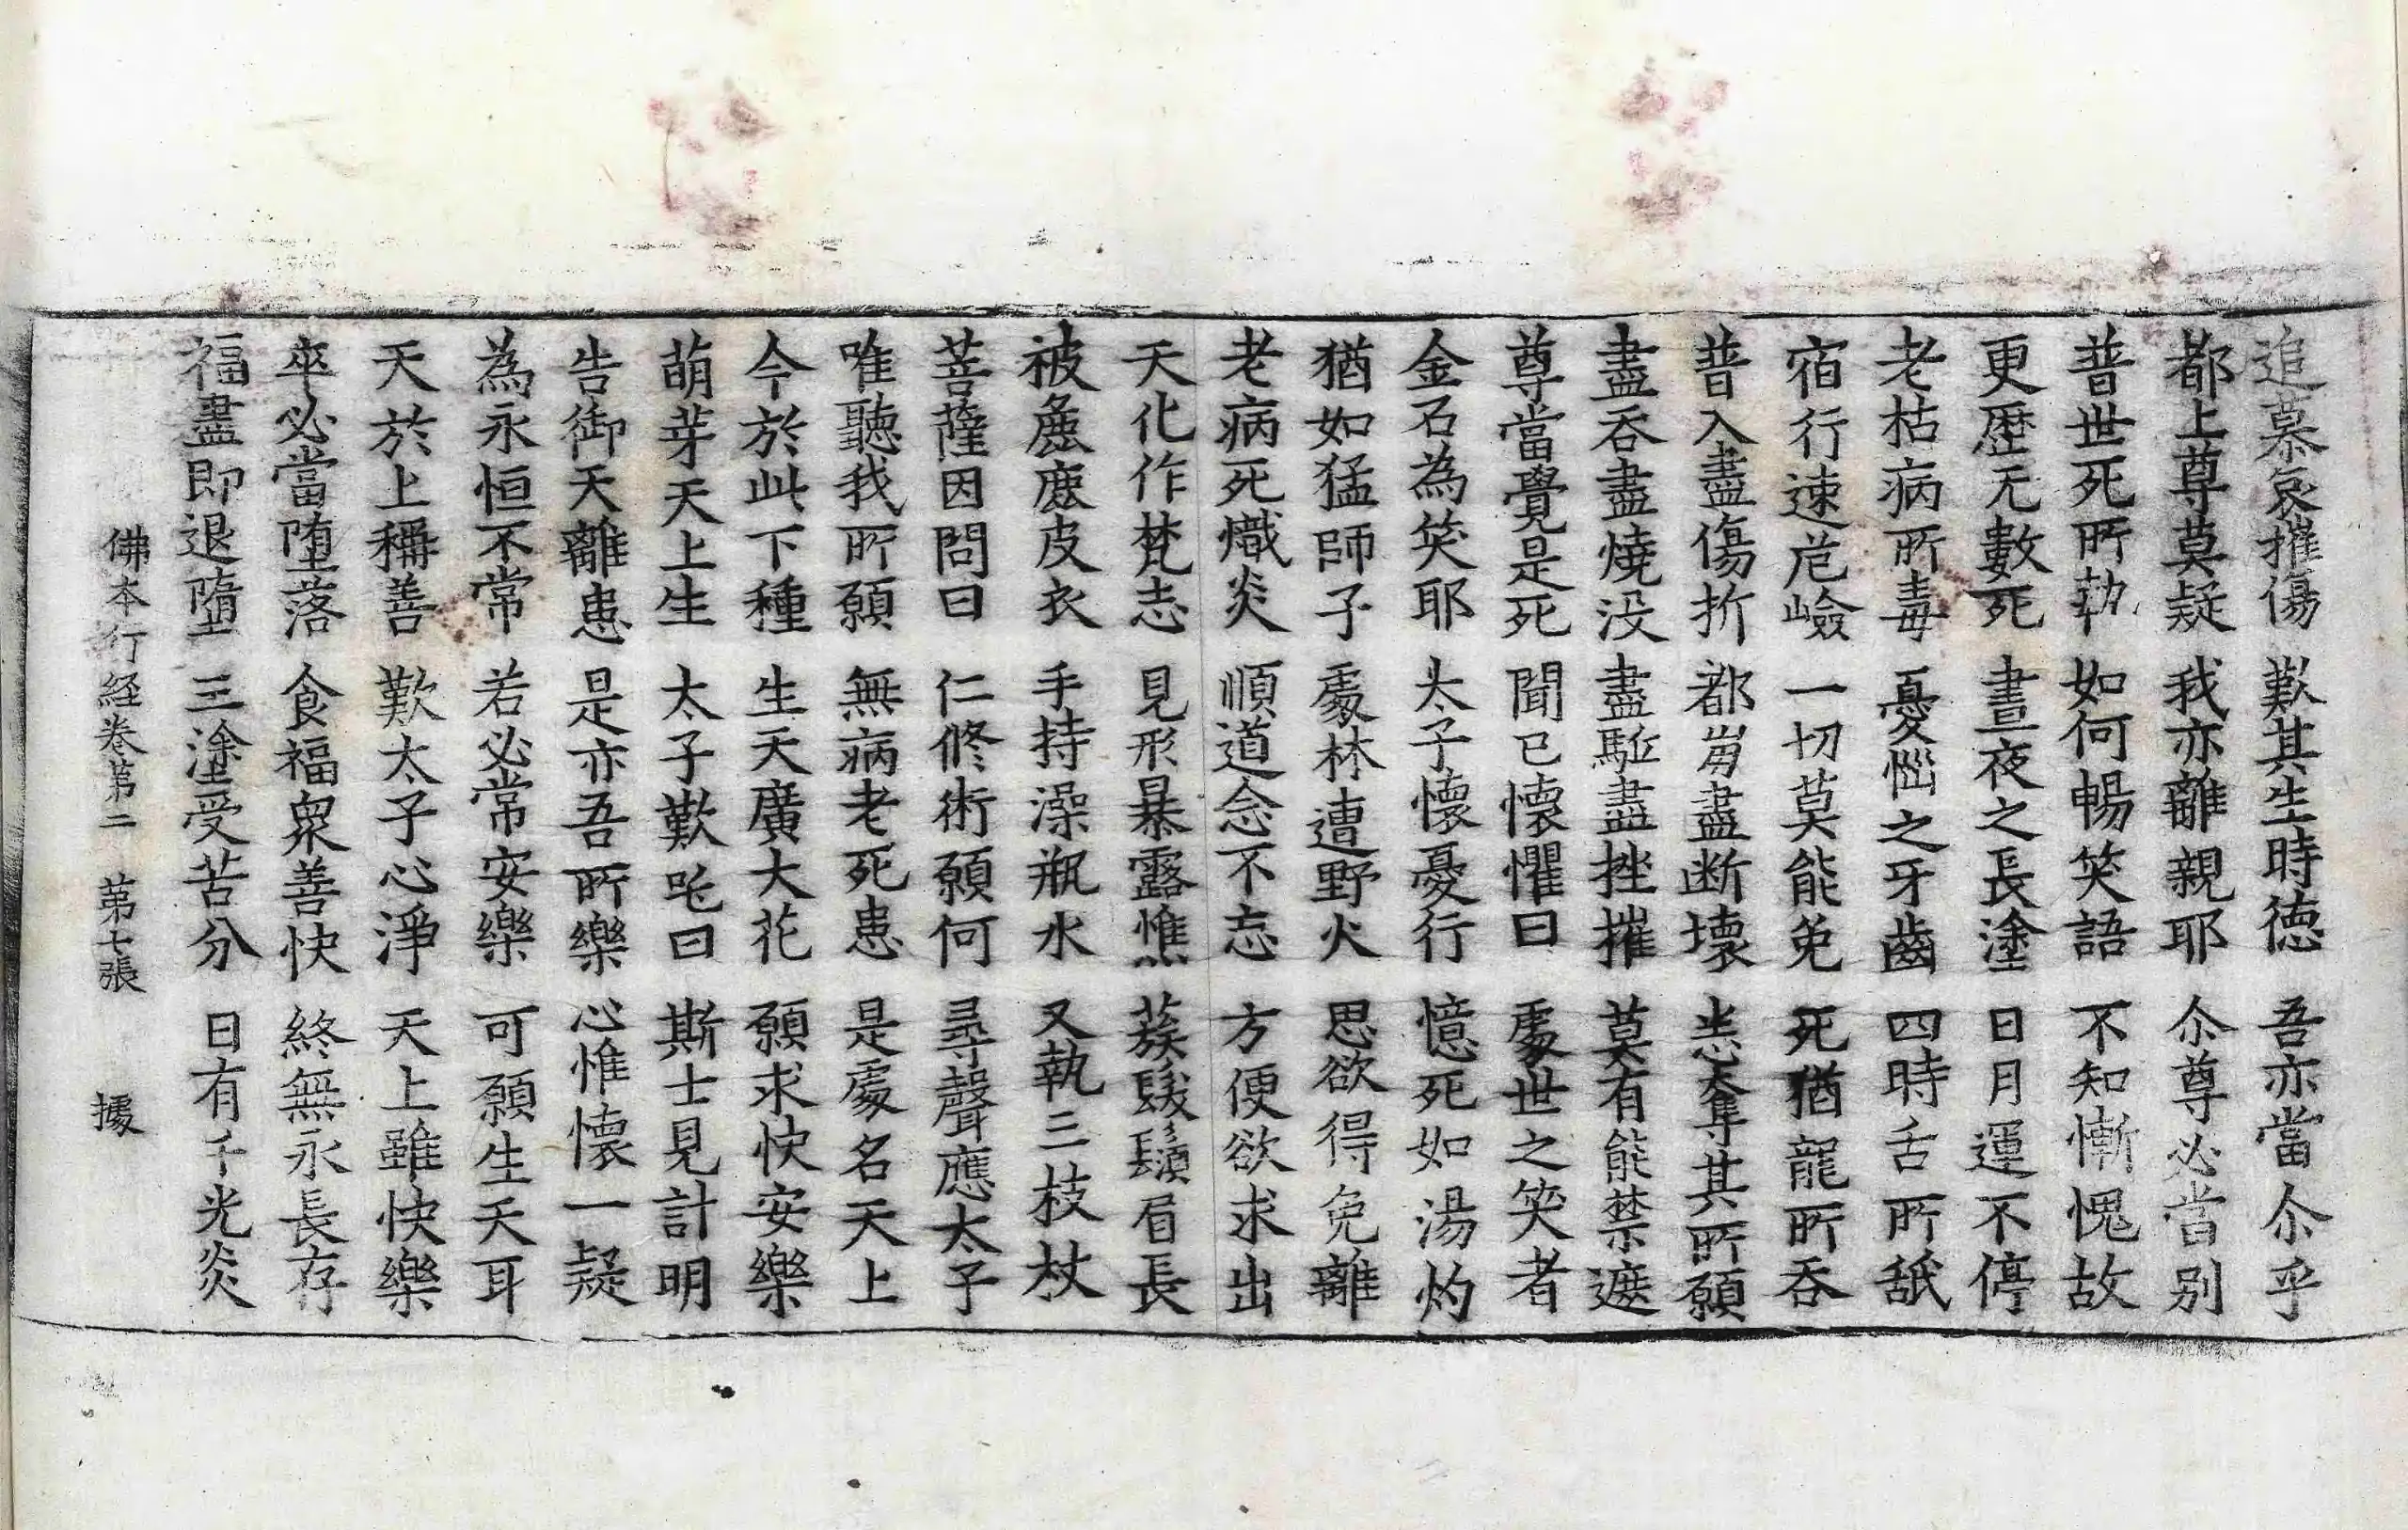 追慕哀摧傷 歎其生時德 吾亦當尒乎
都上尊莫疑 我亦離親耶 尒尊必當别
普世死所執 如何暢笑語 不知慚愧故
更歷无數死 晝夜之長塗 日月運不停
老枯病所毒 憂惱之牙齒 四時舌所舐
宿行速危嶮 一切莫能免 死猶龍所吞
普入盡傷折 都崩盡断壞 恙奪其所願
盡吞盡燒没 盡駈盡挫摧 莫有能禁遮
尊當覺是死 聞已懷懼曰 處世之笑者
金石為笑耶 太子懷憂行 憶死如湯灼
猶如猛師子 處林遭野火 思欲得免離
老病死熾炎 順道念不忘 方便欲求出
天化作梵志 見形暴露憔 蒺髮鬚眉長
被麁鹿皮衣 手持澡瓶水 又執三枝杖
菩薩因問曰 仁修術願何 尋聲應太子
唯聽我所願 無病老死患 是處名天上
今於此下種 生天廣大花 願求快安樂
萌芽天上生 太子歎吒曰 斯士見計明
告御天離患 是亦吾所樂 心惟懷一疑
為永恒不常 若必常安樂 可願生天耳
天於上稱善 歎太子心淨 天上雖快樂
卒必當墮落 食福衆善快 終無永長存
福盡即退墮 三塗受苦分 日有千光炎
佛本行経卷第二 第七張 據